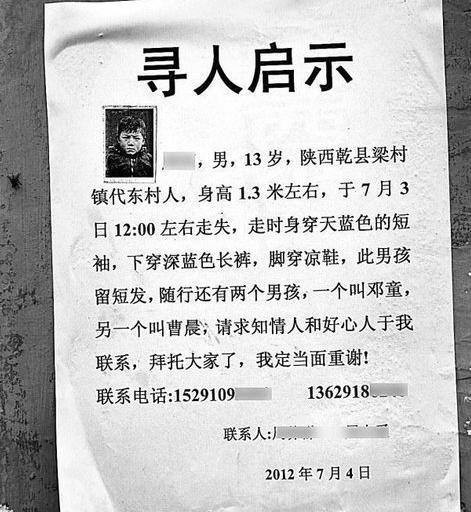 寻人启示
，男，13 岁，陕西乾县梁村
镇代东村人，身高 1.3 米左右，于 7 月 3
日 12:00 左右走失，走时身穿天蓝色的短
袖，下穿深蓝色长裤，脚穿凉鞋，此男孩
留短发，随行还有两个男孩，一个叫邓童，
另一个叫曹晨；请求知情人和好心人于我
联系，拜托大家了，我定当面重谢！
联系电话:1529109 1362918
联系人:
2012 年 7 月 4 日